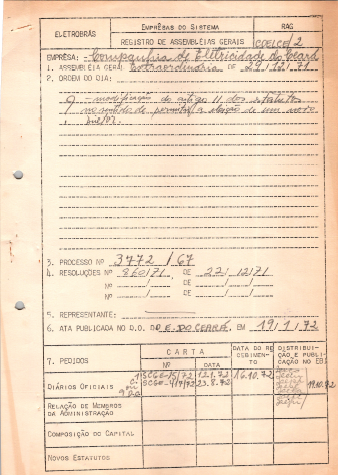 ELETROBRÁS
EMPRÊSAS DO SISTEMA
RAG
REGISTRO DE ASSEMBLÉIAS GERAIS
COELCE/2
EMPRÊSA: Companhia de Eletricidade do Ceará
1. ASSEMBLÉIA GERAL Extraordinária DE 29/12/71
2. ORDEM DO DIA:
a) - modificação do artigo 11 dos estatutos
no sentido de permitir a eleição de um novo
diretor.
3. PROCESSO Nº 3772/67
4. RESOLUÇÕES Nº 860/71 DE 22/12/71
Nº / DE / /
Nº / DE / /
5. REPRESENTANTE:
6. ATA PUBLICADA NO D.O. DO E. DO CEARÁ. EM 19/1/72
7. PEDIDOS
CARTA
Nº
DATA
DATA DO RECEBIMENTO
DISTRIBUIÇÃO E PUBLICAÇÃO NO EB
DIÁRIOS OFICIAIS
12.1.72
23.8.72
16.10.72
19.10.72
RELAÇÃO DE MEMBROS
DA ADMINISTRAÇÃO
COMPOSIÇÃO DO CAPITAL
NOVOS ESTATUTOS